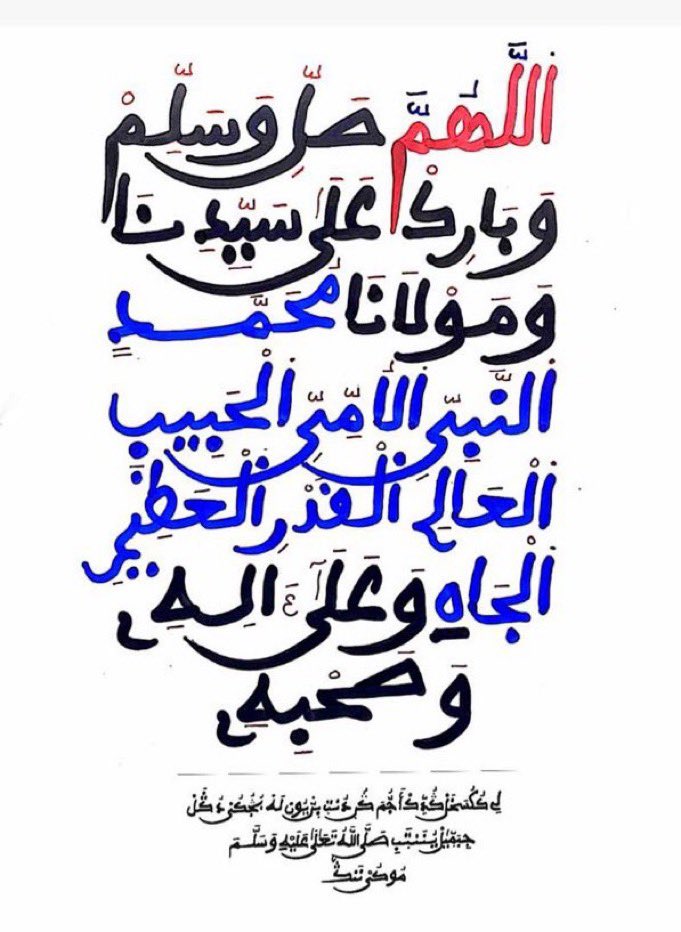 اَللَّهُمَّ صَلِّ وَسَلِّمْ
وَبَارِكْ عَلَى سَيِّدِنَا
وَمَوْلَانَا مُحَمَّدٍ
اَلنَّبِيِّ الْأُمِّيِّ الْحَبِيبِ
اَلْعَالِي الْقَدْرِ الْعَظِيمِ
اَلْجَاهِ وَعَلَى آلِهِ
وَصَحْبِهِ
صَلَّى اللَّهُ تَعَالَى عَلَيْهِ وَسَلَّمَ